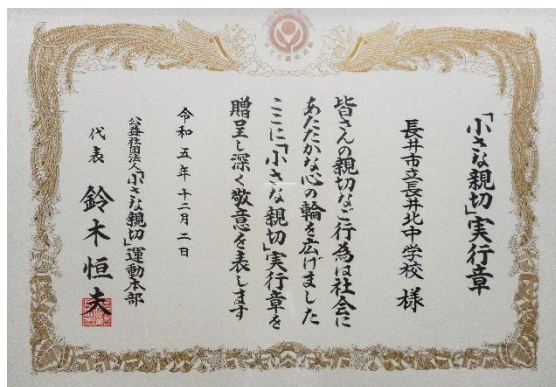 「小さな親切」実行章
長井市立長井北中学校 様
皆さんの親切なご行為は社会に
あたたかな心の輪を広げました
ここに「小さな親切」実行章を
贈呈し深く敬意を表します
令和五年十二月二日
公益社団法人「小さな親切」運動本部
代表 鈴木恒夫